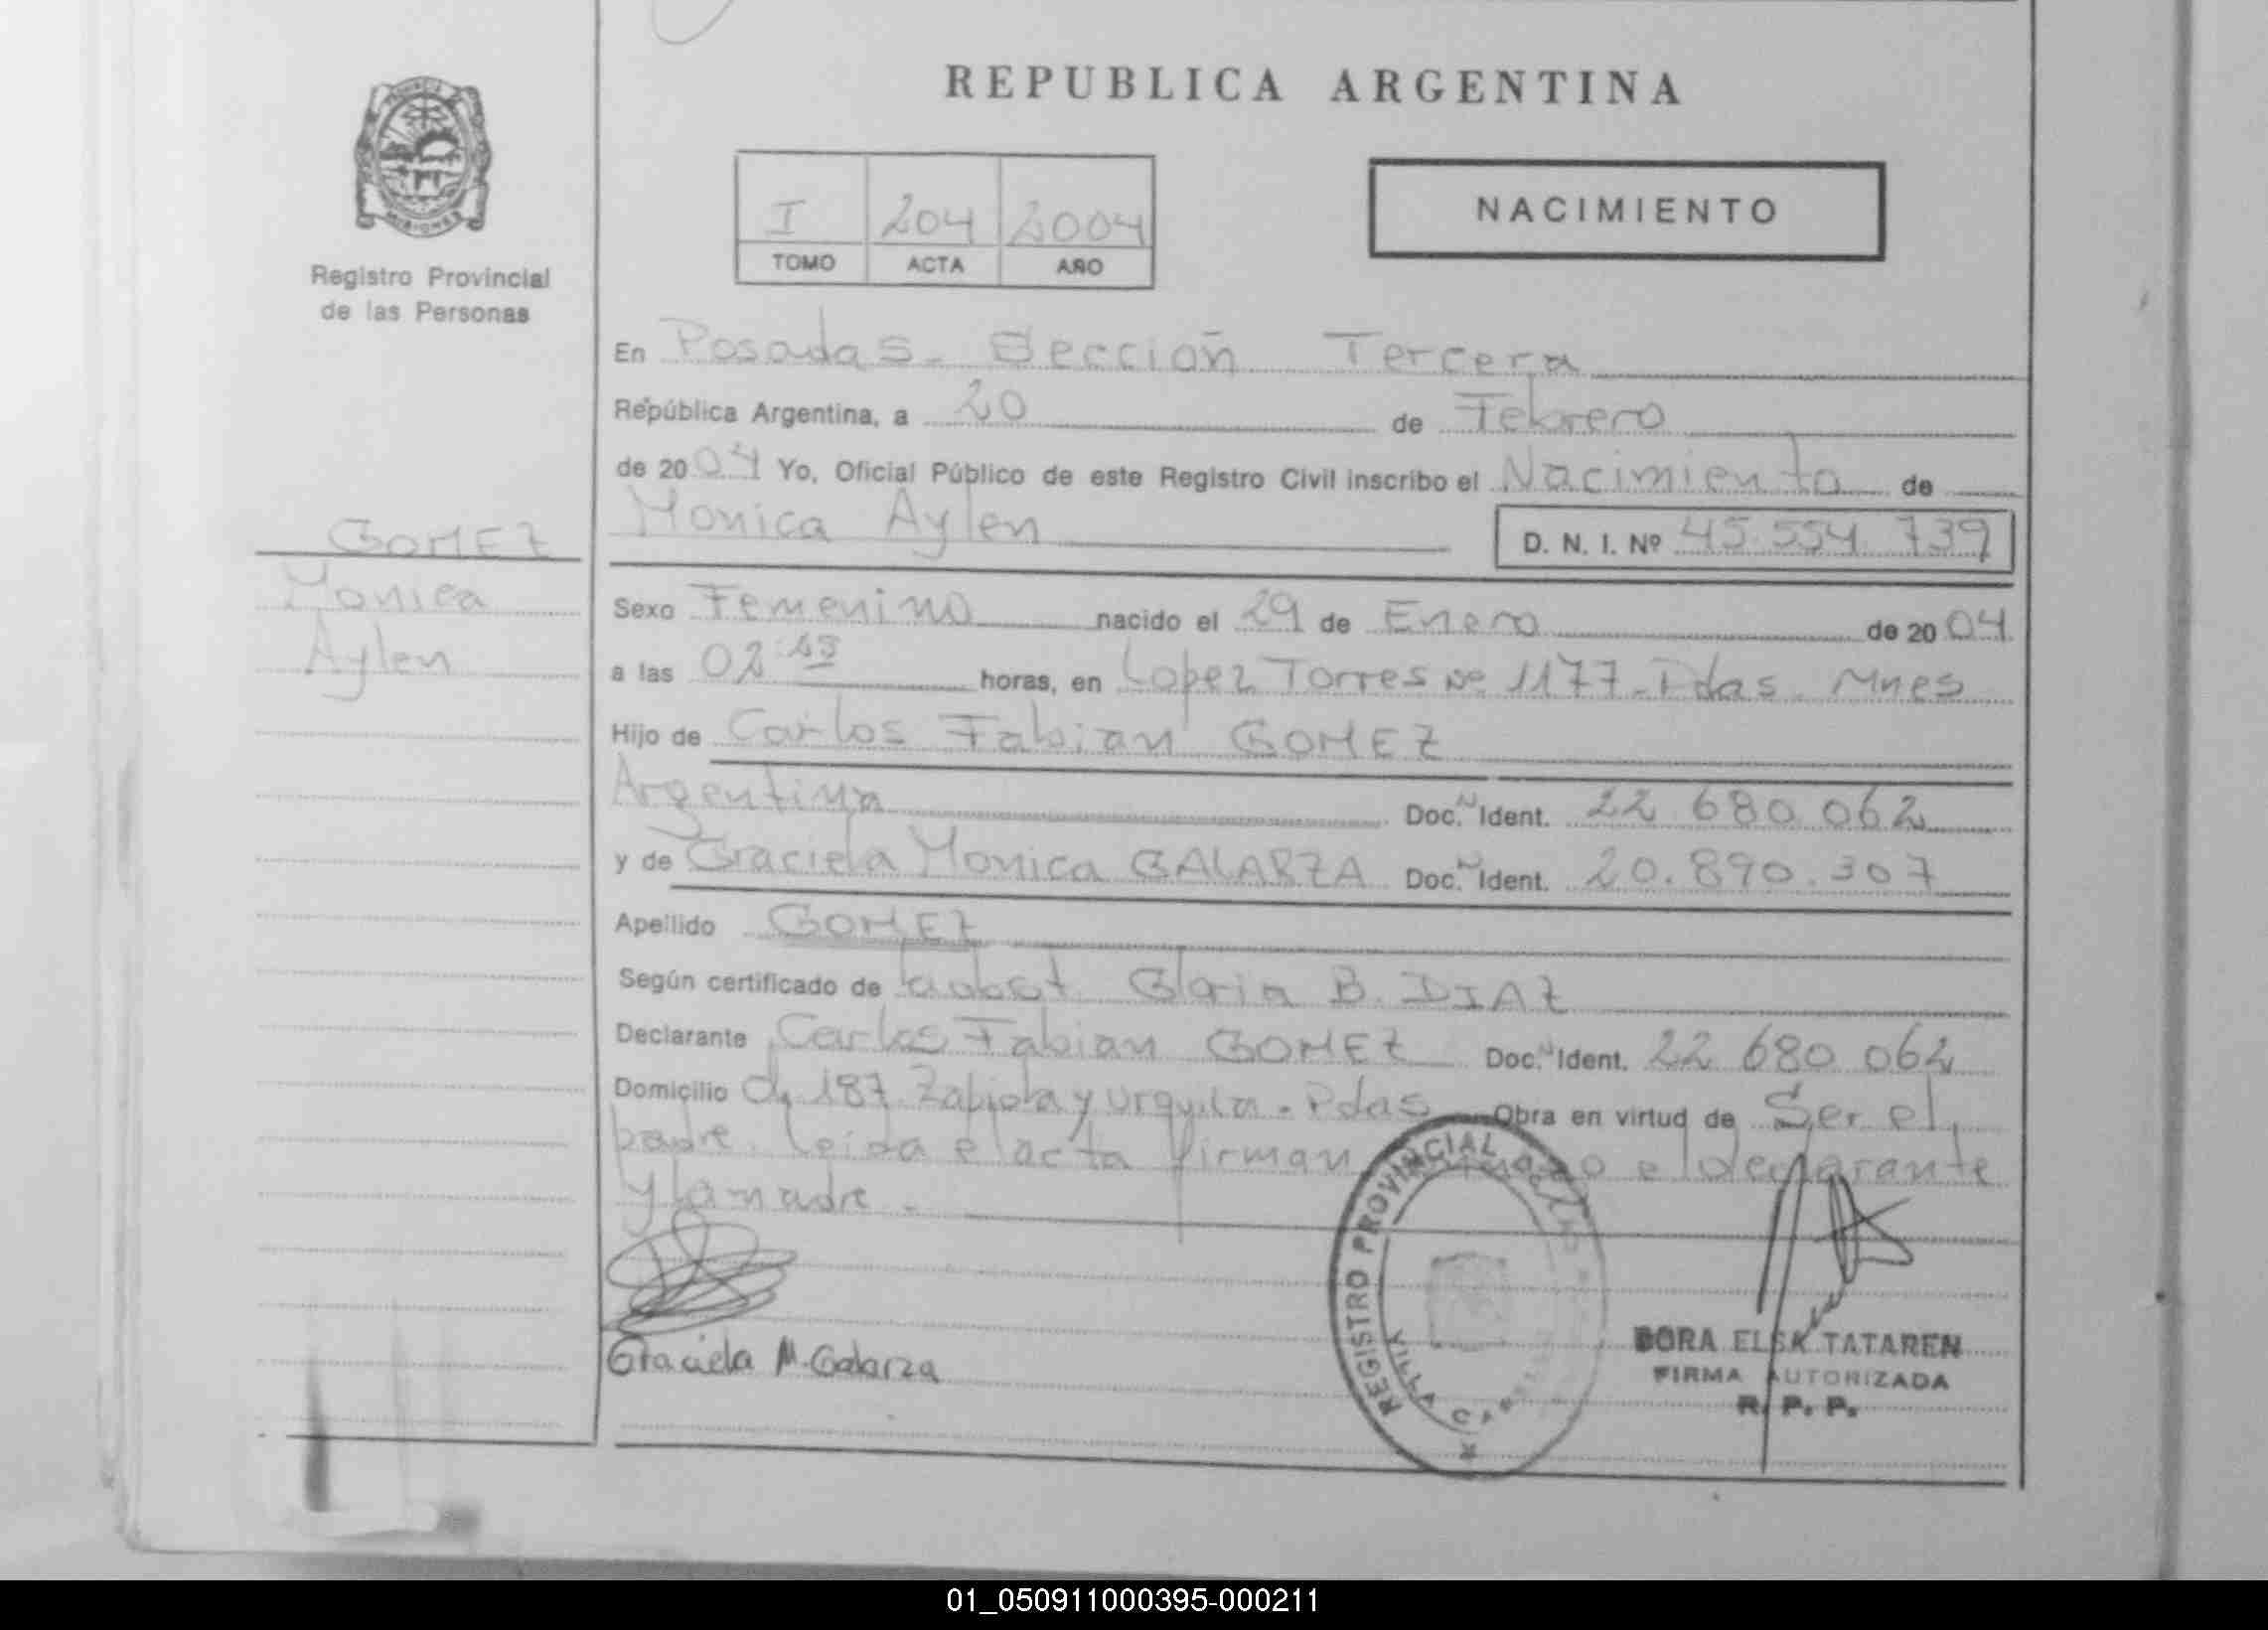 REPUBLICA ARGENTINA
MISIONES
Registro Provincial
de las Personas
I 204 2004
TOMO ACTA AÑO
NACIMIENTO
En Posadas - Sección Tercera
República Argentina, a 20 de Febrero
de 2004 Yo, Oficial Público de este Registro Civil inscribo el Nacimiento de
Monica Aylen D. N. I. Nº 45.554.739
GOMEZ
Monica
Aylen
Sexo Femenino nacido el 29 de Enero de 2004
a las 02: horas, en Lopez Torres Nº 1177 - Pdas. Mnes
Hijo de Carlos Fabian GOMEZ
Argentina Doc. N Ident. 22.680.062
y de Graciela Monica GALARZA Doc. N Ident. 20.890.307
Apellido GOMEZ
Según certificado de Gloria B. DIAZ
Declarante Carlos Fabian GOMEZ Doc. N Ident. 22 680 062
Domicilio 187 y Urquiza - Pdas Obra en virtud de Ser el
padre. Leida el acta firman el declarante
y la madre.
Graciela M. Galarza
REGISTRO PROVINCIAL
VILLA
DORA ELSA TATAREN
FIRMA AUTORIZADA
R. P. P.
01_050911000395-000211